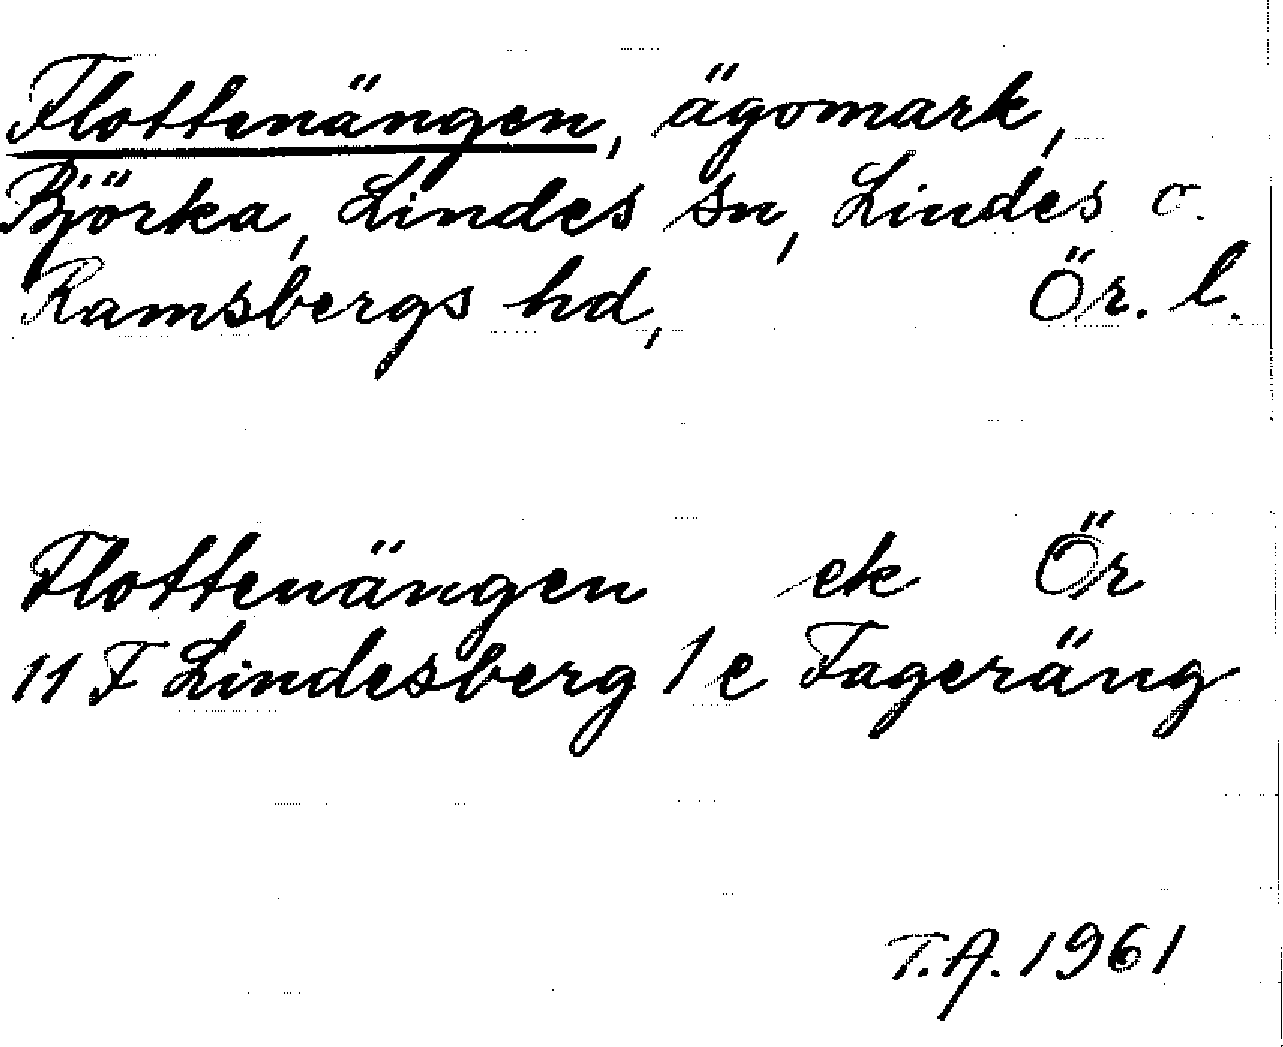 Flottenängen, ägomark,
Björka, Lindes sn, Lindes o.
Ramsbergs hd, Ör. l.
Flottenängen ek Ör
11 F Lindesberg 1 e Fageräng
T.A. 1961